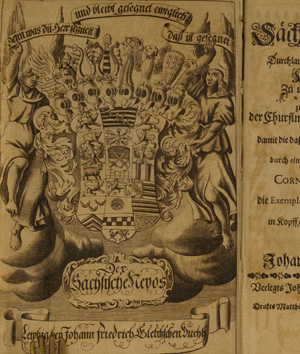 und bleibt gesegnet ewiglich
Denn was du Herr segnest
daß ist gesegnet
Der
Sächsische Nepos
Leipzig bey Johann Friedrich Gleditschen Buchh
Durchlau
Zu
der Churfür
damit die daß
durch ein
CORN
die Exempla
in Kopff
Johan
Verlegts Joh